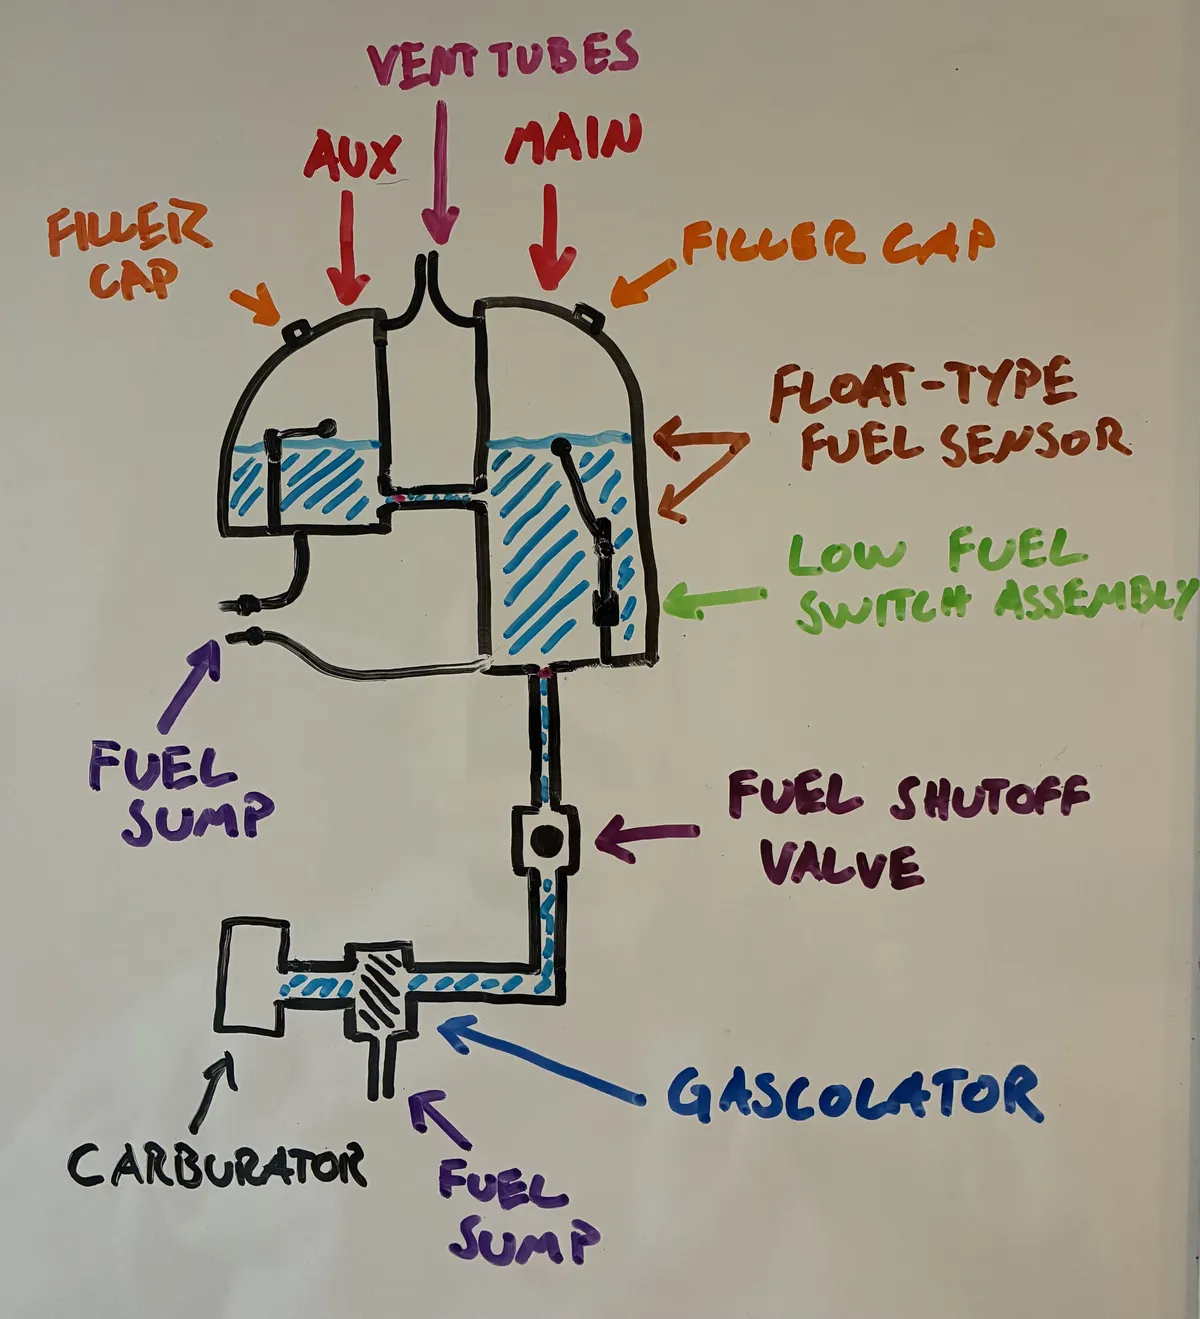 VENT TUBES
AUX
MAIN
FILLER
CAP
FILLER CAP
FLOAT-TYPE
FUEL SENSOR
LOW FUEL
SWITCH ASSEMBLY
FUEL
SUMP
FUEL SHUTOFF
VALVE
GASCOLATOR
CARBURATOR
FUEL
SUMP